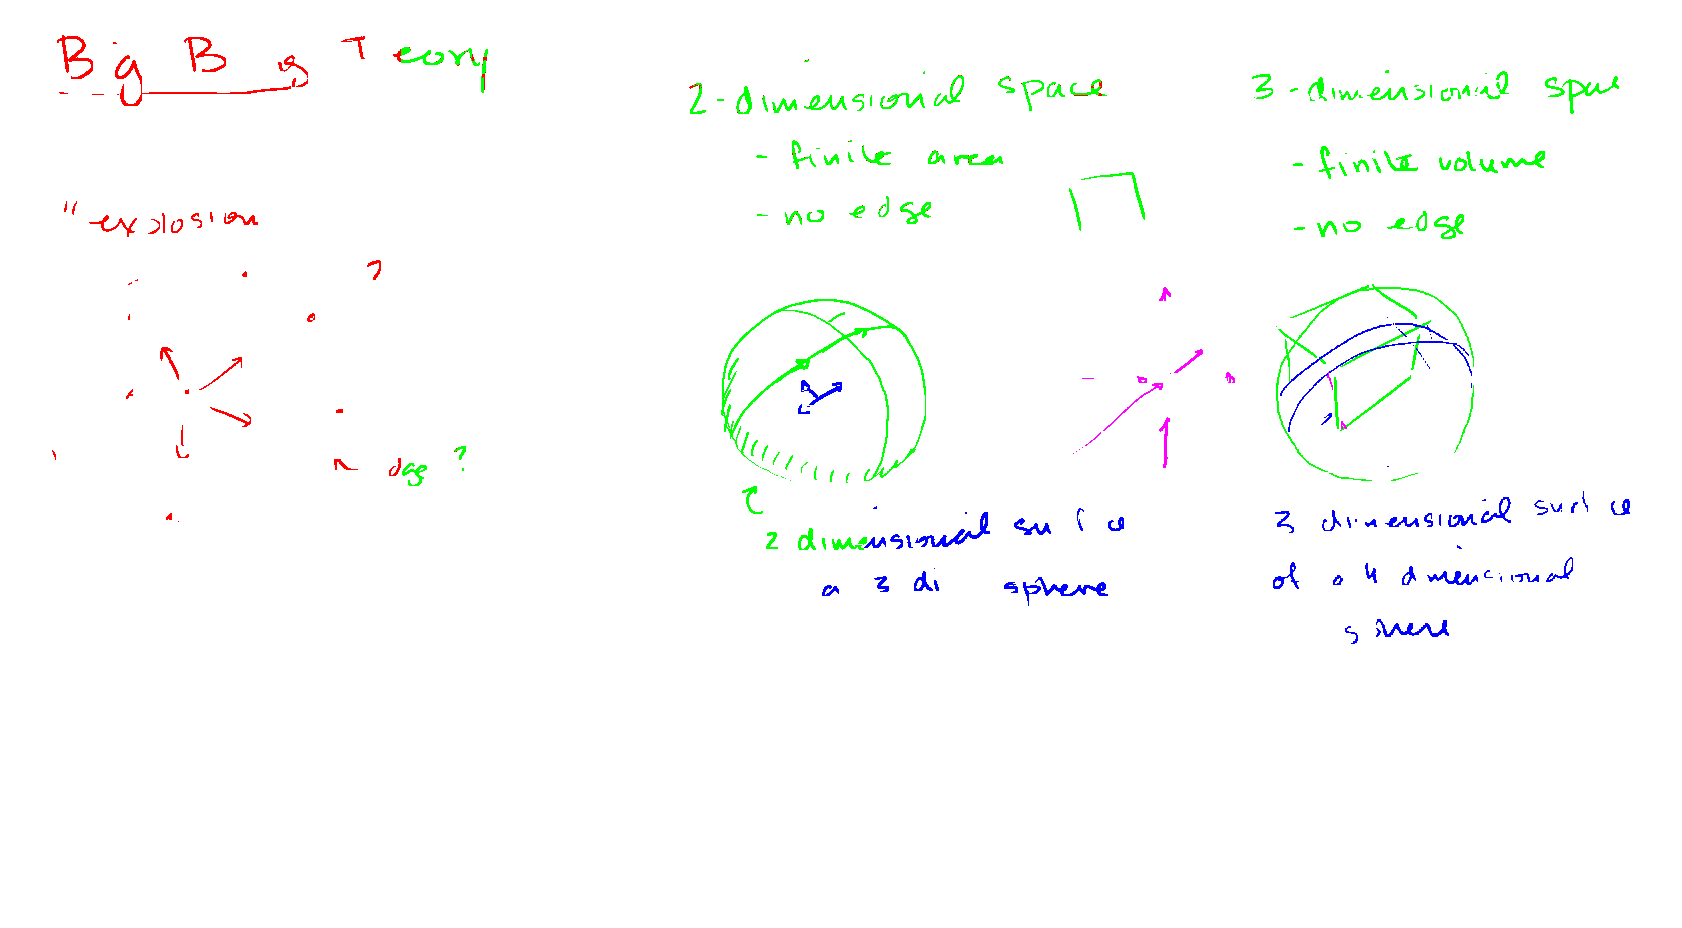 Big B g Teory
"explosion
?
dge ?
2-dimensional space
- finite area
- no edge
2 dimensional su f ce
a 3 di sphere
3-dimensional space
- finite volume
- no edge
3 dimensional surf ce
of a 4 dimensional
s here